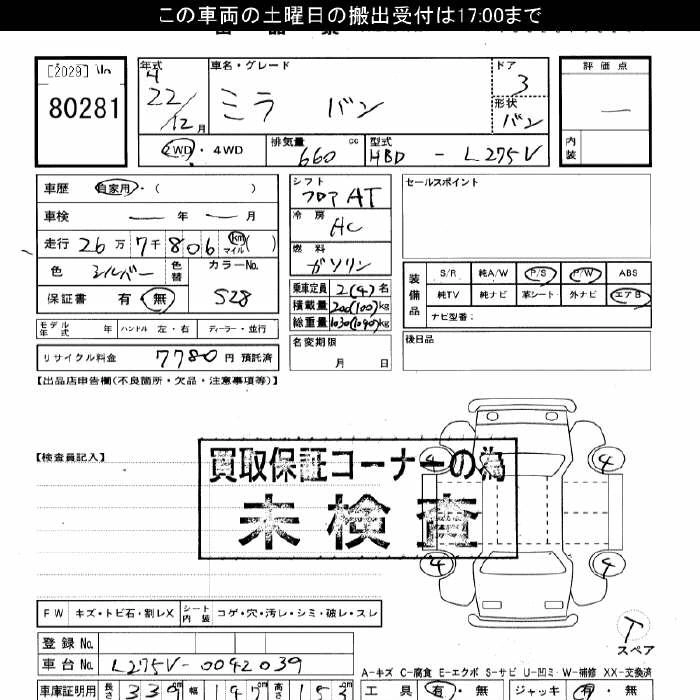 この車両の土曜日の搬出受付は17:00まで
[2029] No
80281
年式 車名・グレード ドア 評価点
4
22/12月 ミラ バン 3
形状 バン
2WD・4WD 排気量 660 cc 型式 HBD - L275V 内装
車歴 自家用・( )
車検 ー 年 ー 月
走行 26万7千806 km マイル ( )
色 シルバー 色替 カラーNo. S28
保証書 有・無
モデル年式 年 ハンドル 左・右 ディーラー・並行
リサイクル料金 7780 円 預託済
シフト フロア AT
冷房 AC
燃料 ガソリン
乗車定員 2(4)名
積載量 200(100)kg
総重量 1030(1090)kg
名変期限 月 日
セールスポイント
装備品 S/R 純A/W P/S P/W ABS
純TV 純ナビ 革シート 外ナビ エアB
ナビ型番:
後日品
【出品店申告欄(不良箇所・欠品・注意事項等)】
【検査員記入】
買取保証コーナーの為
未検査
4 4
4 4
FW キズ・トビ石・割レX シート内装 コゲ・穴・汚レ・シミ・破レ・スレ
T
スペア
登録No.
車台No. L275V-0042039
A-キズ C-腐食 E-エクボ S-サビ U-凹ミ W-補修 XX-交換済
車庫証明用 長さ 339cm 幅 147cm 高さ 153cm 工具 有・無 ジャッキ 有・無